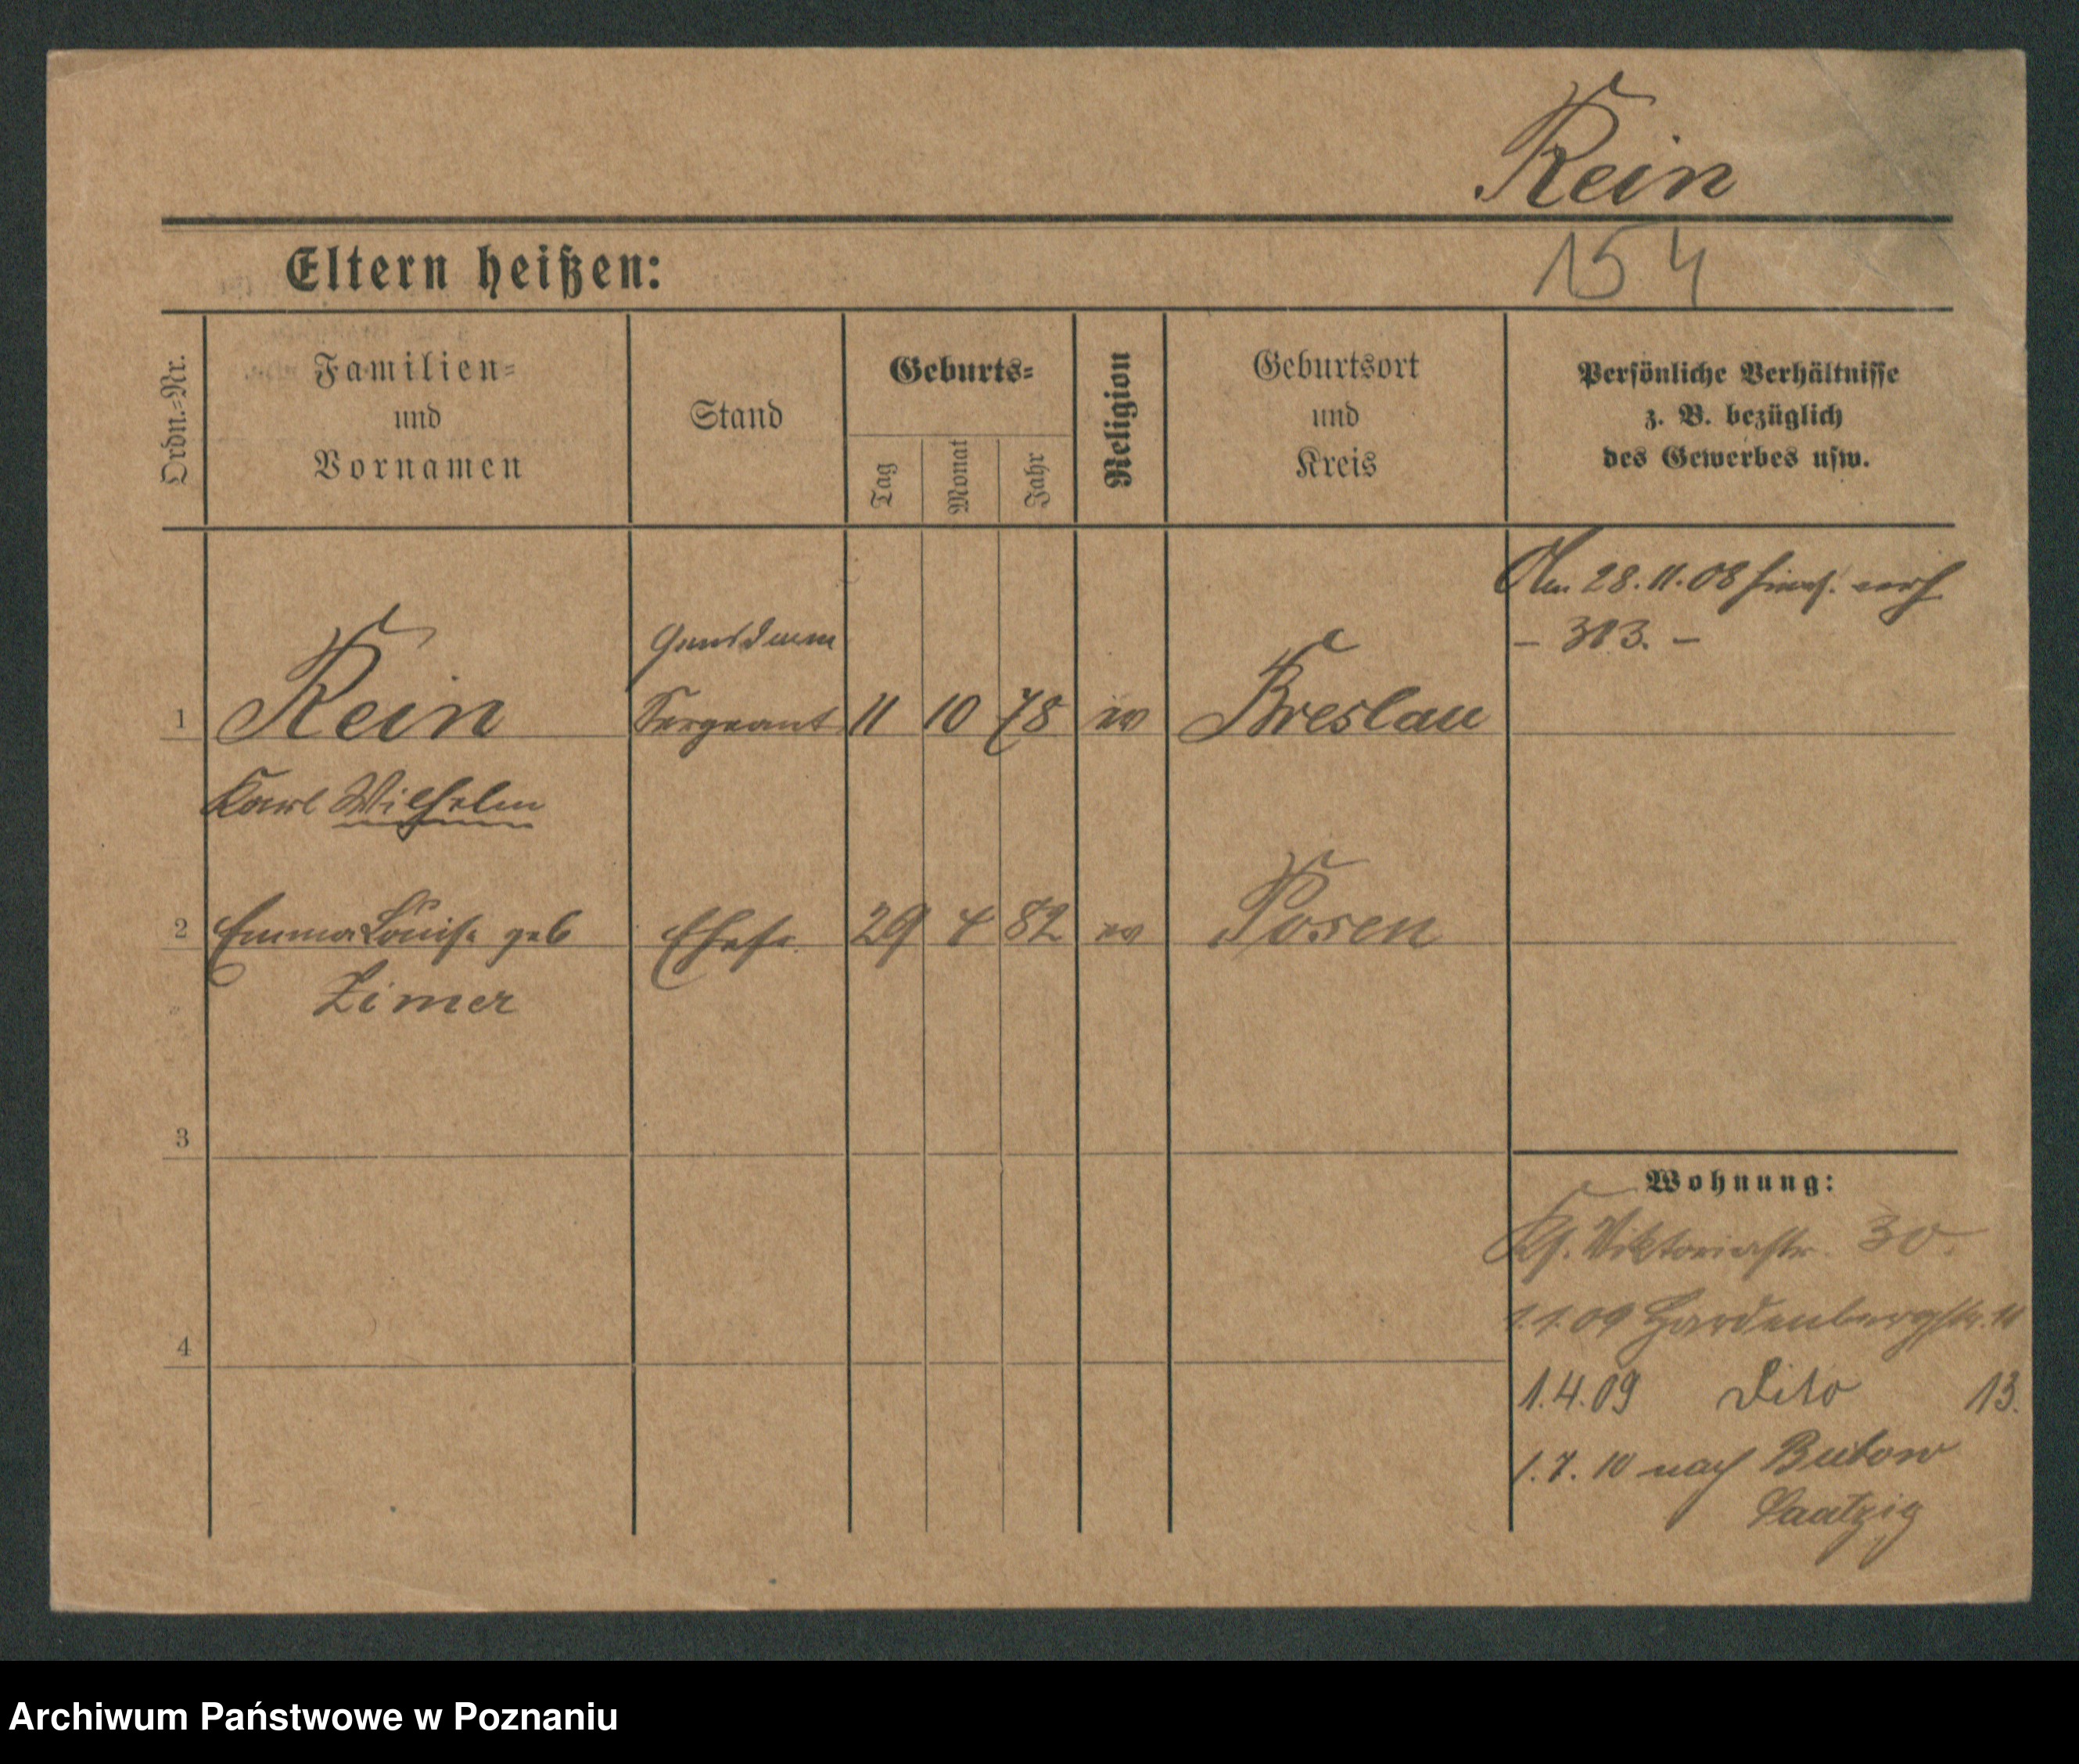 Rein
154
Eltern heißen:
Ordn.-Nr.
Familien-
und
Vornamen
Stand
Geburts-
Tag
Monat
Jahr
Religion
Geburtsort
und
Kreis
Persönliche Verhältnisse
z. B. bezüglich
des Gewerbes usw.
Am 28.11.08
– 313. –
1 Rein Sergeant 11 10 78 ev Breslau
Karl Wilhelm
2 Emma Louise geb Ehefr. 29 4 82 ev Posen
Zimer
3
4
Wohnung:
Viktoriastr. 30.
1.1.09 Hardenbergstr. 11
1.4.09 dito 13.
1.7.10 nach Butow
Saatzig
Archiwum Państwowe w Poznaniu